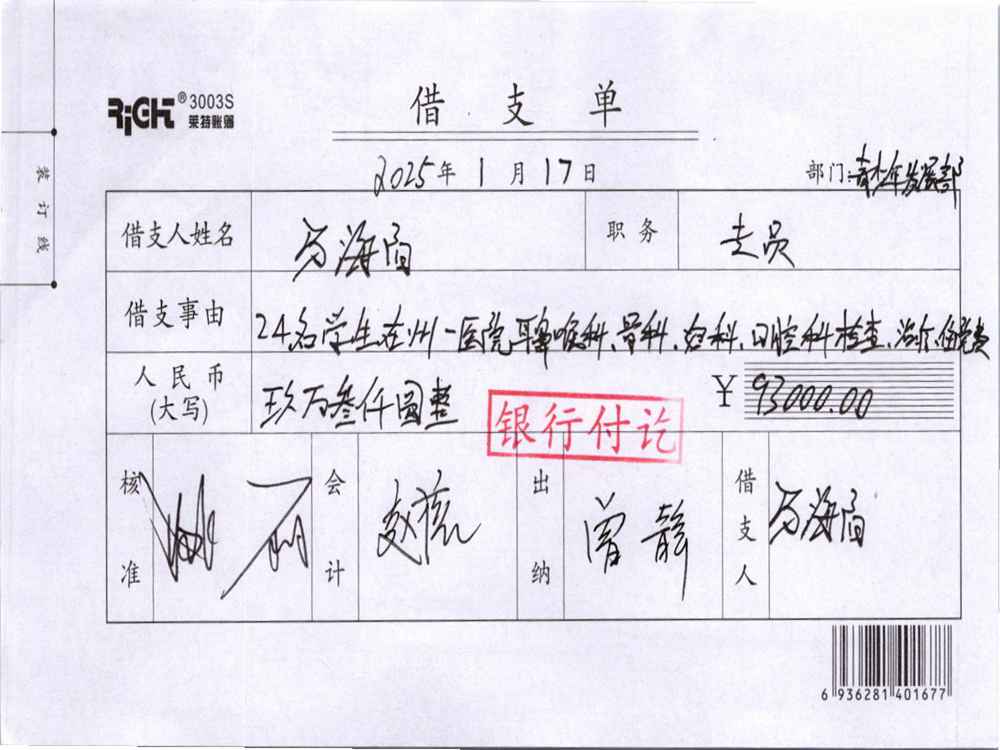 RiGHT®3003S
莱特账簿
借支单
2025年1月17日
部门:青少年发展部
装订线
借支人姓名
海
职务
专员
借支事由 24名学生在州一医院耳鼻喉科、骨科、妇科、口腔科检查、治疗、住院费
人民币(大写) 玖万叁仟圆整 ¥93000.00
银行付讫
核准
会计 赵
出纳 曾静
借支人 海
6 936281 401677